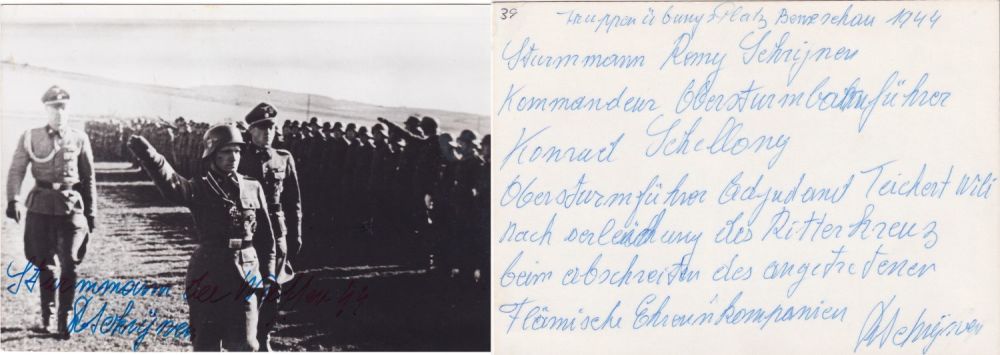 Sturmmann der Waffen SS
RSchrijnen
39
Truppenübungsplatz Beneschau 1944
Sturmmann Remy Schrijnen
Kommandeur Obersturmbannführer
Konrad Schellong
Obersturmführer Adjudant Teichert Wili
nach verleichung des Ritterkreuz
beim abschreiten des angetretenen
Flämische Ehrenkompanien RSchrijnen